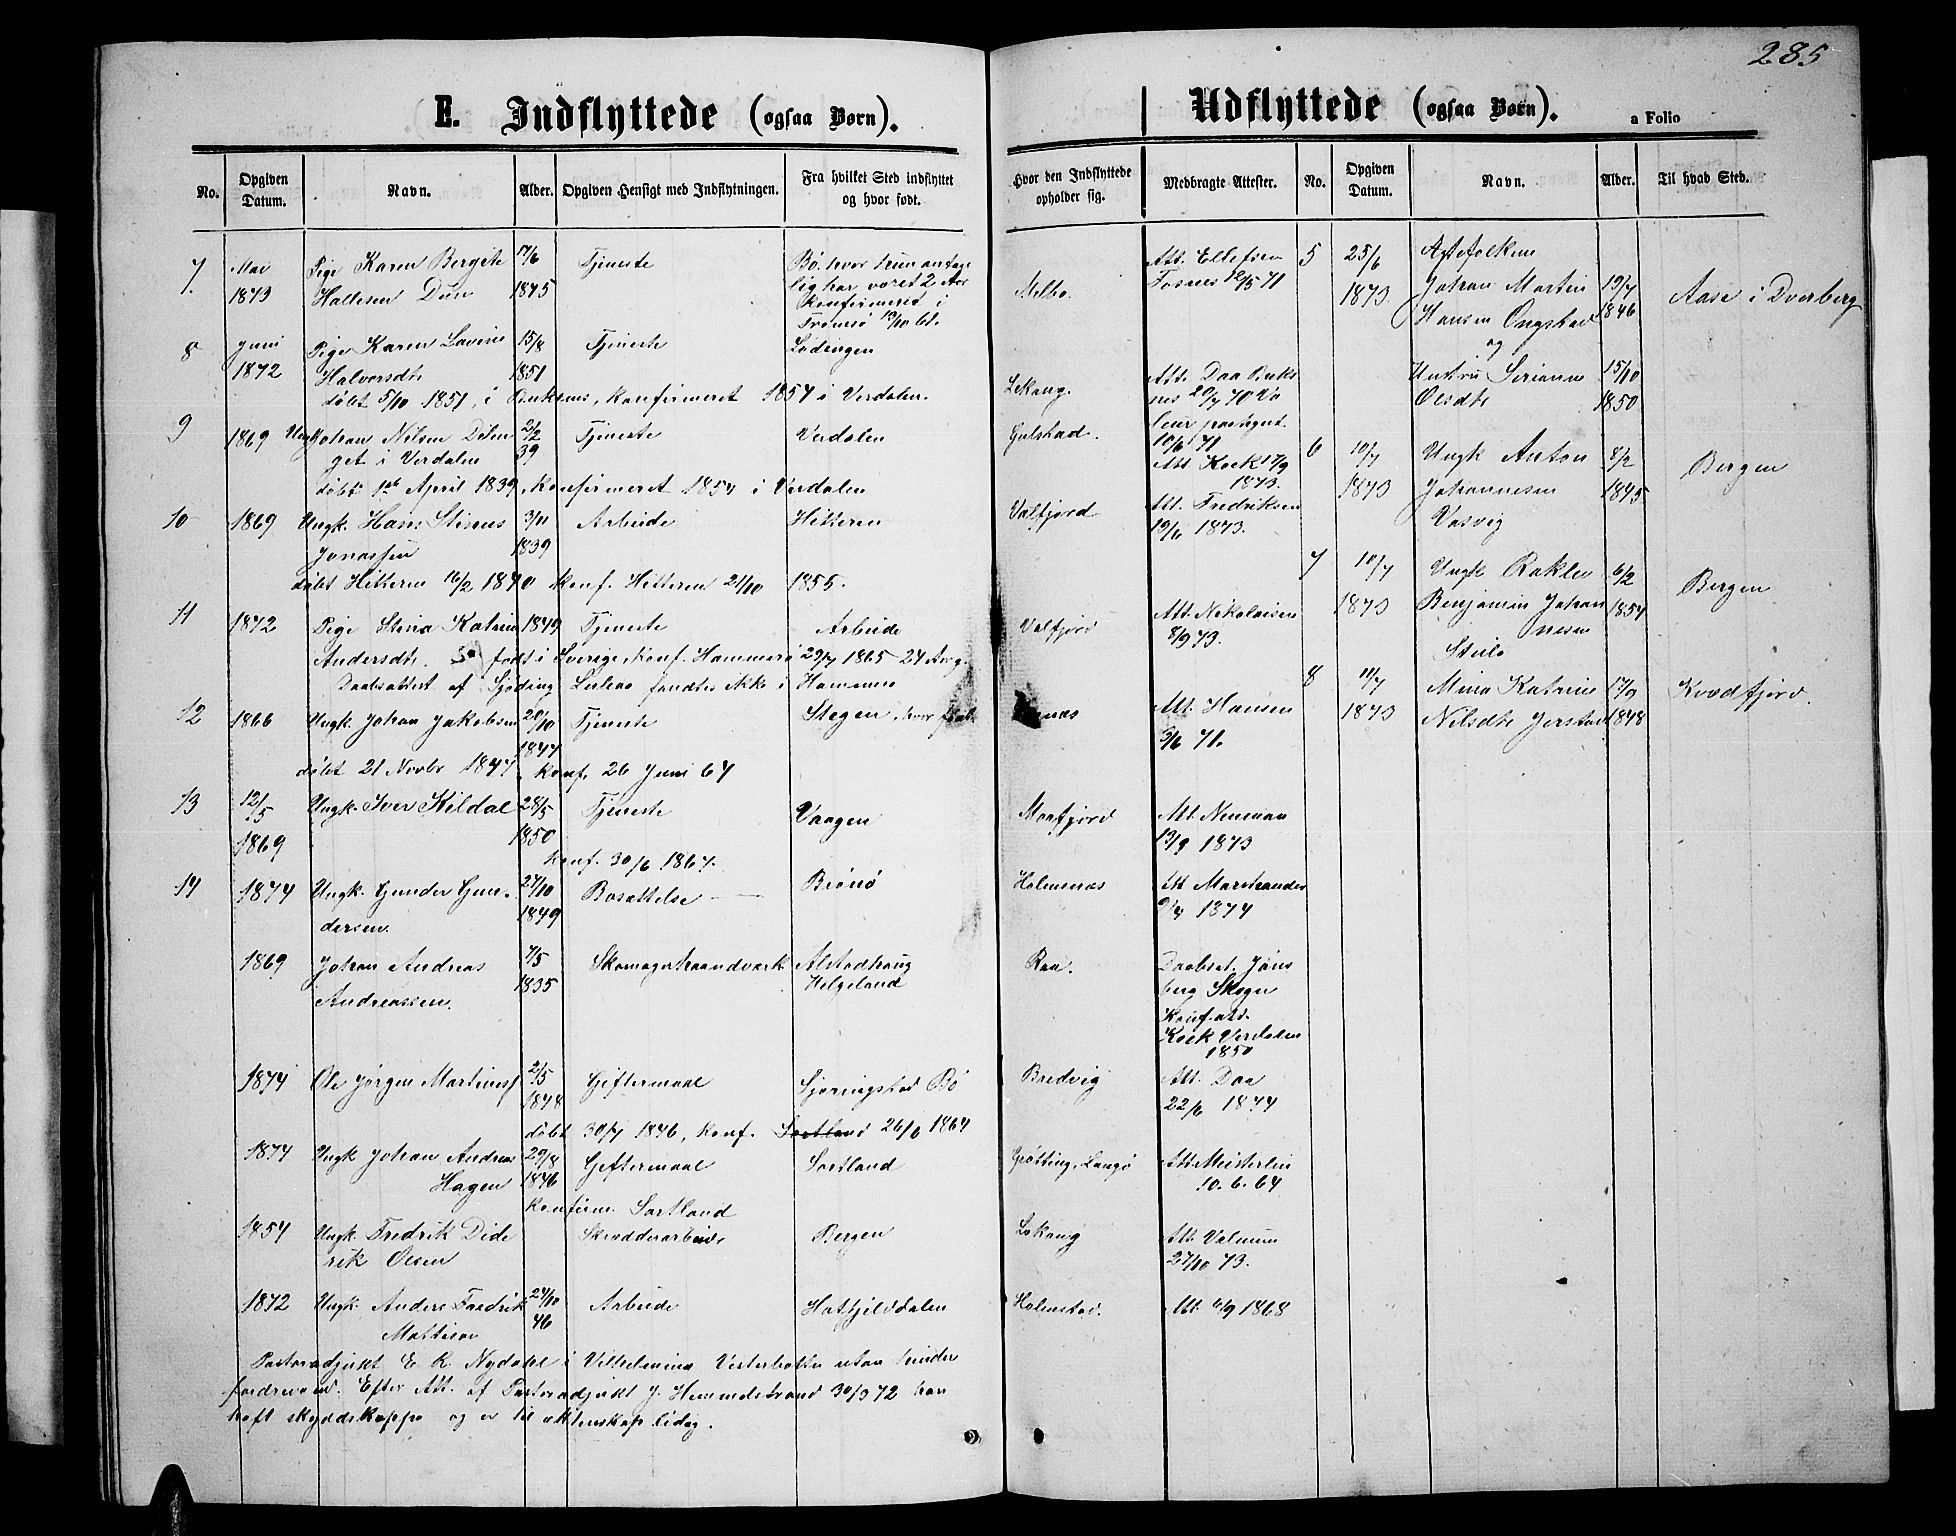 285
E. Indflyttede (ogsaa Børn).
No. Opgiven Datum. Navn. Alder. Opgiven Hensigt med Indflytningen. Fra hvilket Sted indflyttet og hvor født.
7. Mai Pige Karen Bergite 17/6 Tjeneste Bø. hvor hun antage
1873 Hallesen 1845 lig har været 2 Aar
Konfirmeret i
Tromsø
8 Juni Pige Karen Lavine 15/8 Tjeneste Lødingen
1872 Halvorsdtr 1851
døbt 5/10 1851, i Buksnes, konfirmeret i Verdalen.
9 1869 Ungk Johan Nilsen 2/2 Tjeneste Verdalen
get i Verdalen 39
døbt 1st April 1839, konfirmeret 1854 i Verdalen
10 1869 Ungk. Hans Stinus 3/11 Arbeide Hitteren
Jonassen 1839
døbt Hitteren 16/2 1840 konf. Hitteren 21/10 1855.
11 1872 Pige Stina Katrina 1849 Tjeneste Arbeide
Andersdtr. født i Sverige, konf. Hammerø 29/7 1865 - 24 Aar g.
Daabsattest af Sjöding Luleaa fandtes ikke i Hammerø
12 1866 Ungk. Johan Jakobsen 20/10 Tjeneste Stegen, hvor født
1847
døbt 21 Novbr 1847, konf. 26 Juni 64
13 12/5 Ungk. Iver Kildal 28/5 Tjeneste Vaagen
1869 1850
konf. 30/6 1867.
14 1874 Ungk. Gunder Gun- 27/10 Bosættelse Brønø
dersen. 1849
1869 Johan Andreas 7/5 Skomagerhaandværk Alstadhaug
Andreassen. 1835 Helgeland
1874 Ole Jørgen Martinus 2/5 Giftermaal Sjøringstad Bø
1848
døbt 30/7 1846, konf. Sortland 26/6 1864
1874 Ungk Johan Andreas 29/8 Giftermaal Sortland
Hagen 1846
konfirm. Sortland
1854 Ungk. Fredrik Dide Skrædderarbeide Bergen
rik Olsen
1872 Ungk. Anders Fredrik 24/10 Arbeide Hatfjelddalen
Mattison 46
Pastoradjukt E. R. Nydahl i Vilhelmina Vesterbotten utan hinder
. Efter Att. af Pastoradjukt J. Hemmelstrand 30/3 72 han
haft skyddskoppo og er til æktenskap ledig.
Hvor den Indflyttede opholder sig. Medbragte Attester.
Melbo. Att. Ellefsen
Fosnes 12/5 71
Lekang. Att. Daa Buks
nes 20/7 70
Gulstad. 10/6 71
Att. Kock 17/9
1873.
Valfjord Att. Fredriksen
19/6 1873.
Valfjord Att. Nikolaisen
8/9 73.
Att. Hansen
71.
Maafjord Att. Neuman
13/9 1873
Holmsnæs Att Marstrander
1874
Raa. Daabsat. Jøns
berg Skogn
Konf. att.
Kock Verdalen
1850
Bredvig Att. Daa
22/6 1874
Grøtting, Langø Att. Meisterlin
10. 6. 64
Lekang Att.
27/10 73.
Holmstad. Att. 6/9 1868
Udflyttede (ogsaa Børn).
a Folio
No. Opgiven Datum. Navn. Alder. Til hvad Sted.
5 25/6 Ægtefolkene
1873 Johan Martin 19/7 Aase i Dverberg
Hansen Ongstad 1846
og
Hustru Serianne 15/10
Olsdtr 1850
6 10/7 Ungk Anton 8/2 Bergen
1873 Johannesen 1845
Vasvig
7 10/7 Ungk 6/2 Bergen
1873 Benjamin Johan 1854
nesen
8 11/7 Mina Katrine 17/9 Kvædfjord.
1873 Nilsdtr Jerstad 1848